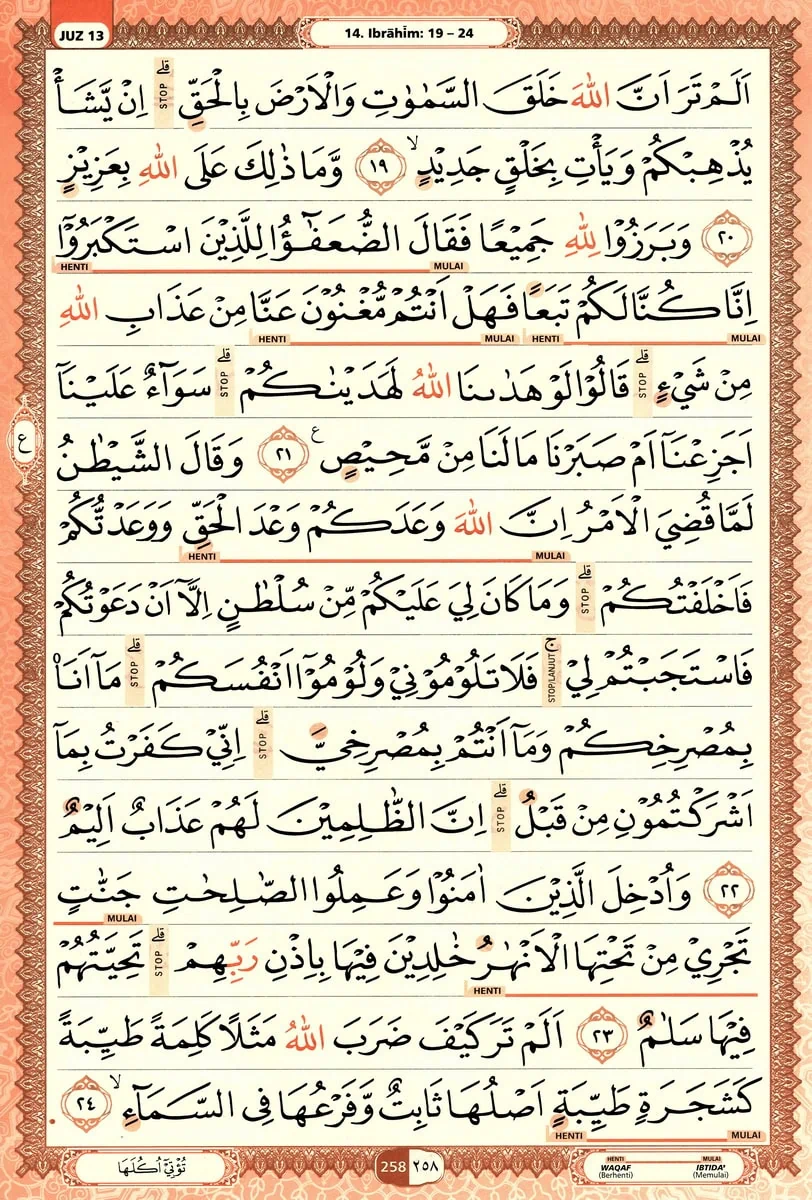 JUZ 13
14. Ibrāhīm: 19 – 24
اَلَمْ تَرَ اَنَّ اللّٰهَ خَلَقَ السَّمٰوٰتِ وَالْاَرْضَ بِالْحَقِّۗ STOP اِنْ يَّشَأْ
يُذْهِبْكُمْ وَيَأْتِ بِخَلْقٍ جَدِيْدٍۙ ١٩ وَّمَا ذٰلِكَ عَلَى اللّٰهِ بِعَزِيْزٍ
٢٠ وَبَرَزُوْا لِلّٰهِ جَمِيْعًا فَقَالَ الضُّعَفٰۤؤُا لِلَّذِيْنَ اسْتَكْبَرُوْٓا
MULAI HENTI
اِنَّا كُنَّا لَكُمْ تَبَعًا فَهَلْ اَنْتُمْ مُّغْنُوْنَ عَنَّا مِنْ عَذَابِ اللّٰهِ
MULAI HENTI MULAI HENTI
مِنْ شَيْءٍۗ STOP قَالُوْا لَوْ هَدٰىنَا اللّٰهُ لَهَدَيْنٰكُمْۗ STOP سَوَاۤءٌ عَلَيْنَآ
اَجَزِعْنَآ اَمْ صَبَرْنَا مَا لَنَا مِنْ مَّحِيْصٍ ع ٢١ وَقَالَ الشَّيْطٰنُ
ع
لَمَّا قُضِيَ الْاَمْرُ اِنَّ اللّٰهَ وَعَدَكُمْ وَعْدَ الْحَقِّ وَوَعَدْتُّكُمْ
MULAI HENTI
فَاَخْلَفْتُكُمْۗ STOP وَمَا كَانَ لِيَ عَلَيْكُمْ مِّنْ سُلْطٰنٍ اِلَّآ اَنْ دَعَوْتُكُمْ
فَاسْتَجَبْتُمْ لِيْۚ STOP/LANJUT فَلَا تَلُوْمُوْنِيْ وَلُوْمُوْٓا اَنْفُسَكُمْۗ STOP مَآ اَنَا۠
بِمُصْرِخِكُمْ وَمَآ اَنْتُمْ بِمُصْرِخِيَّۗ STOP اِنِّيْ كَفَرْتُ بِمَآ
اَشْرَكْتُمُوْنِ مِنْ قَبْلُۗ STOP اِنَّ الظّٰلِمِيْنَ لَهُمْ عَذَابٌ اَلِيْمٌ
٢٢ وَاُدْخِلَ الَّذِيْنَ اٰمَنُوْا وَعَمِلُوا الصّٰلِحٰتِ جَنّٰتٍ
MULAI
تَجْرِيْ مِنْ تَحْتِهَا الْاَنْهٰرُ خٰلِدِيْنَ فِيْهَا بِاِذْنِ رَبِّهِمْۗ STOP تَحِيَّتُهُمْ
HENTI
فِيْهَا سَلٰمٌ ٢٣ اَلَمْ تَرَ كَيْفَ ضَرَبَ اللّٰهُ مَثَلًا كَلِمَةً طَيِّبَةً
كَشَجَرَةٍ طَيِّبَةٍ اَصْلُهَا ثَابِتٌ وَّفَرْعُهَا فِى السَّمَاۤءِۙ ٢٤
MULAI HENTI
تُؤْتِيْٓ اُكُلَهَا
258 ٢٥٨
HENTI MULAI
WAQAF IBTIDA'
(Berhenti) (Memulai)